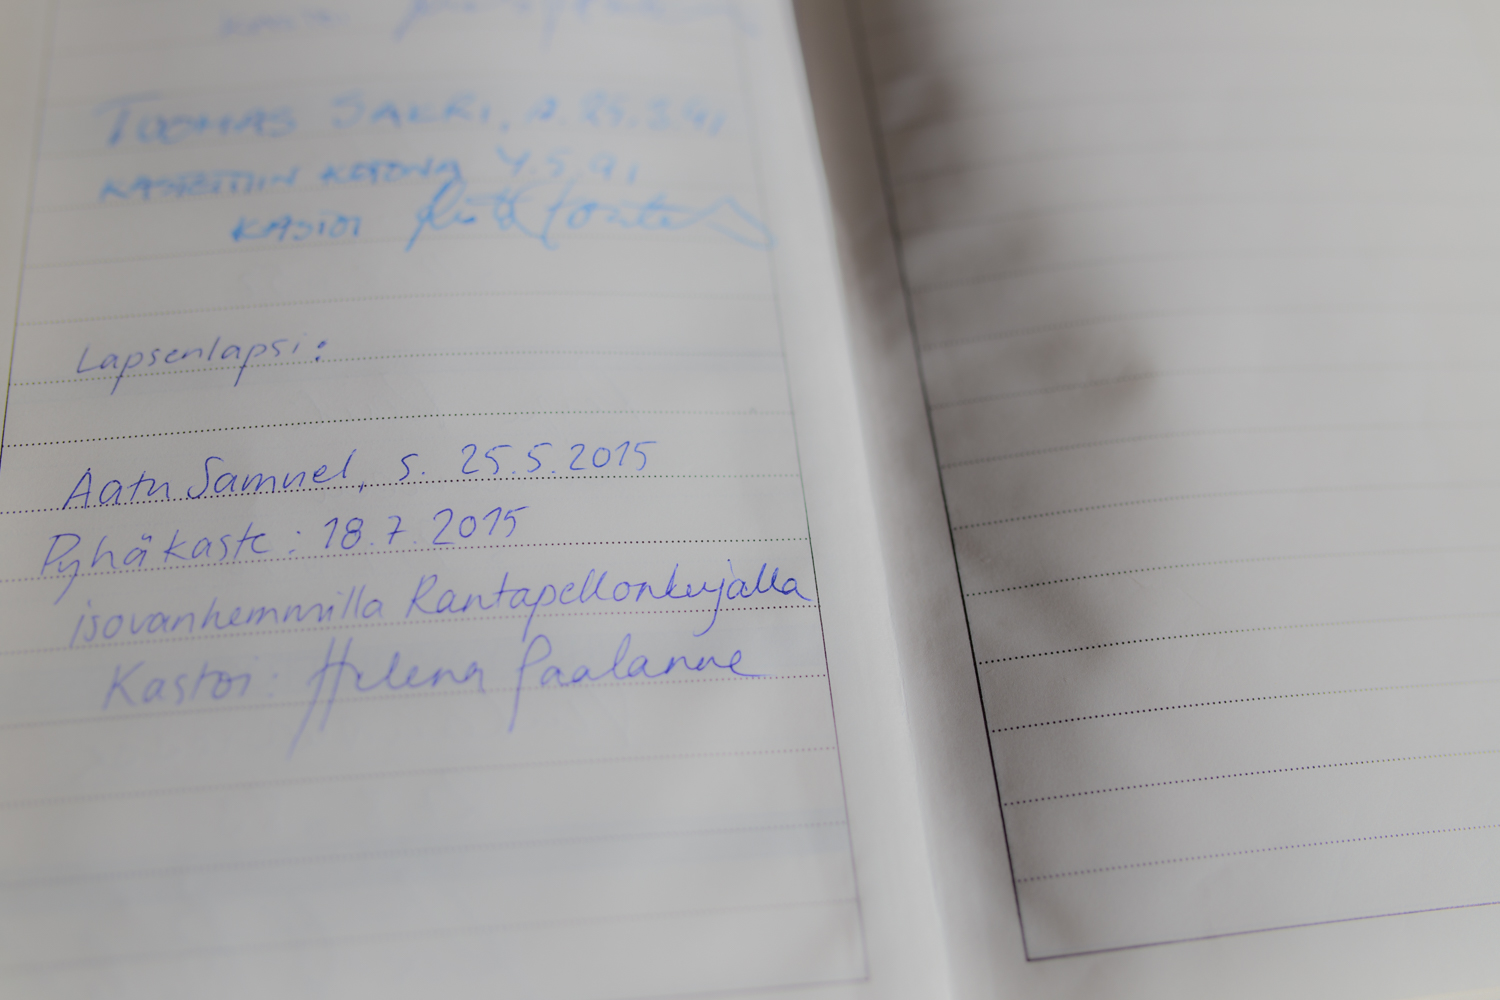 TUOMAS SAKRI,
KASTETTIIN KOTONA 4.5.91
KASTOI
Lapsenlapsi:
Aatu Samuel, s. 25.5.2015
Pyhä kaste: 18.7.2015
isovanhemmilla Rantapellonkujalla
Kastoi: Helena Paalanne